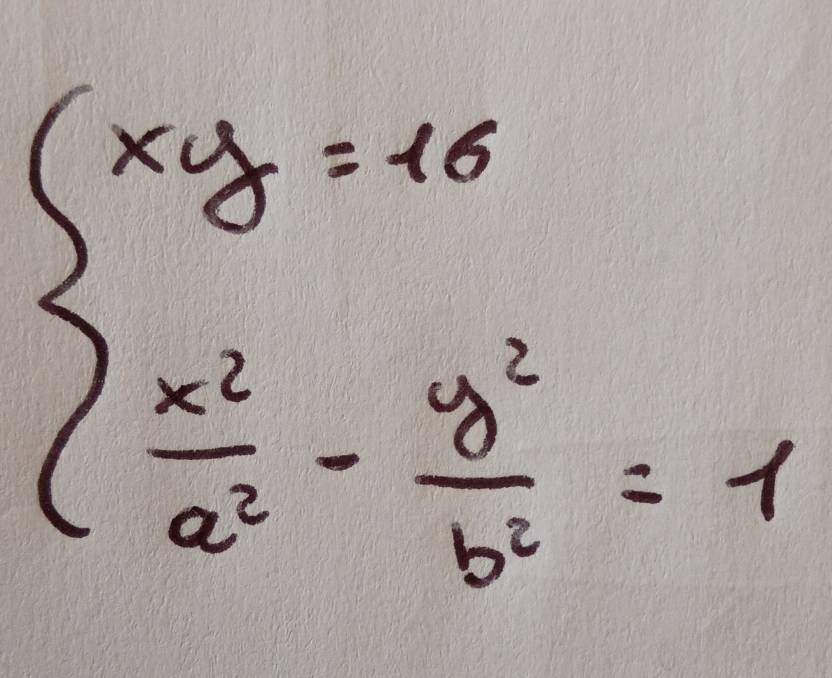 xy = 16
x²/a² - y²/b² = 1